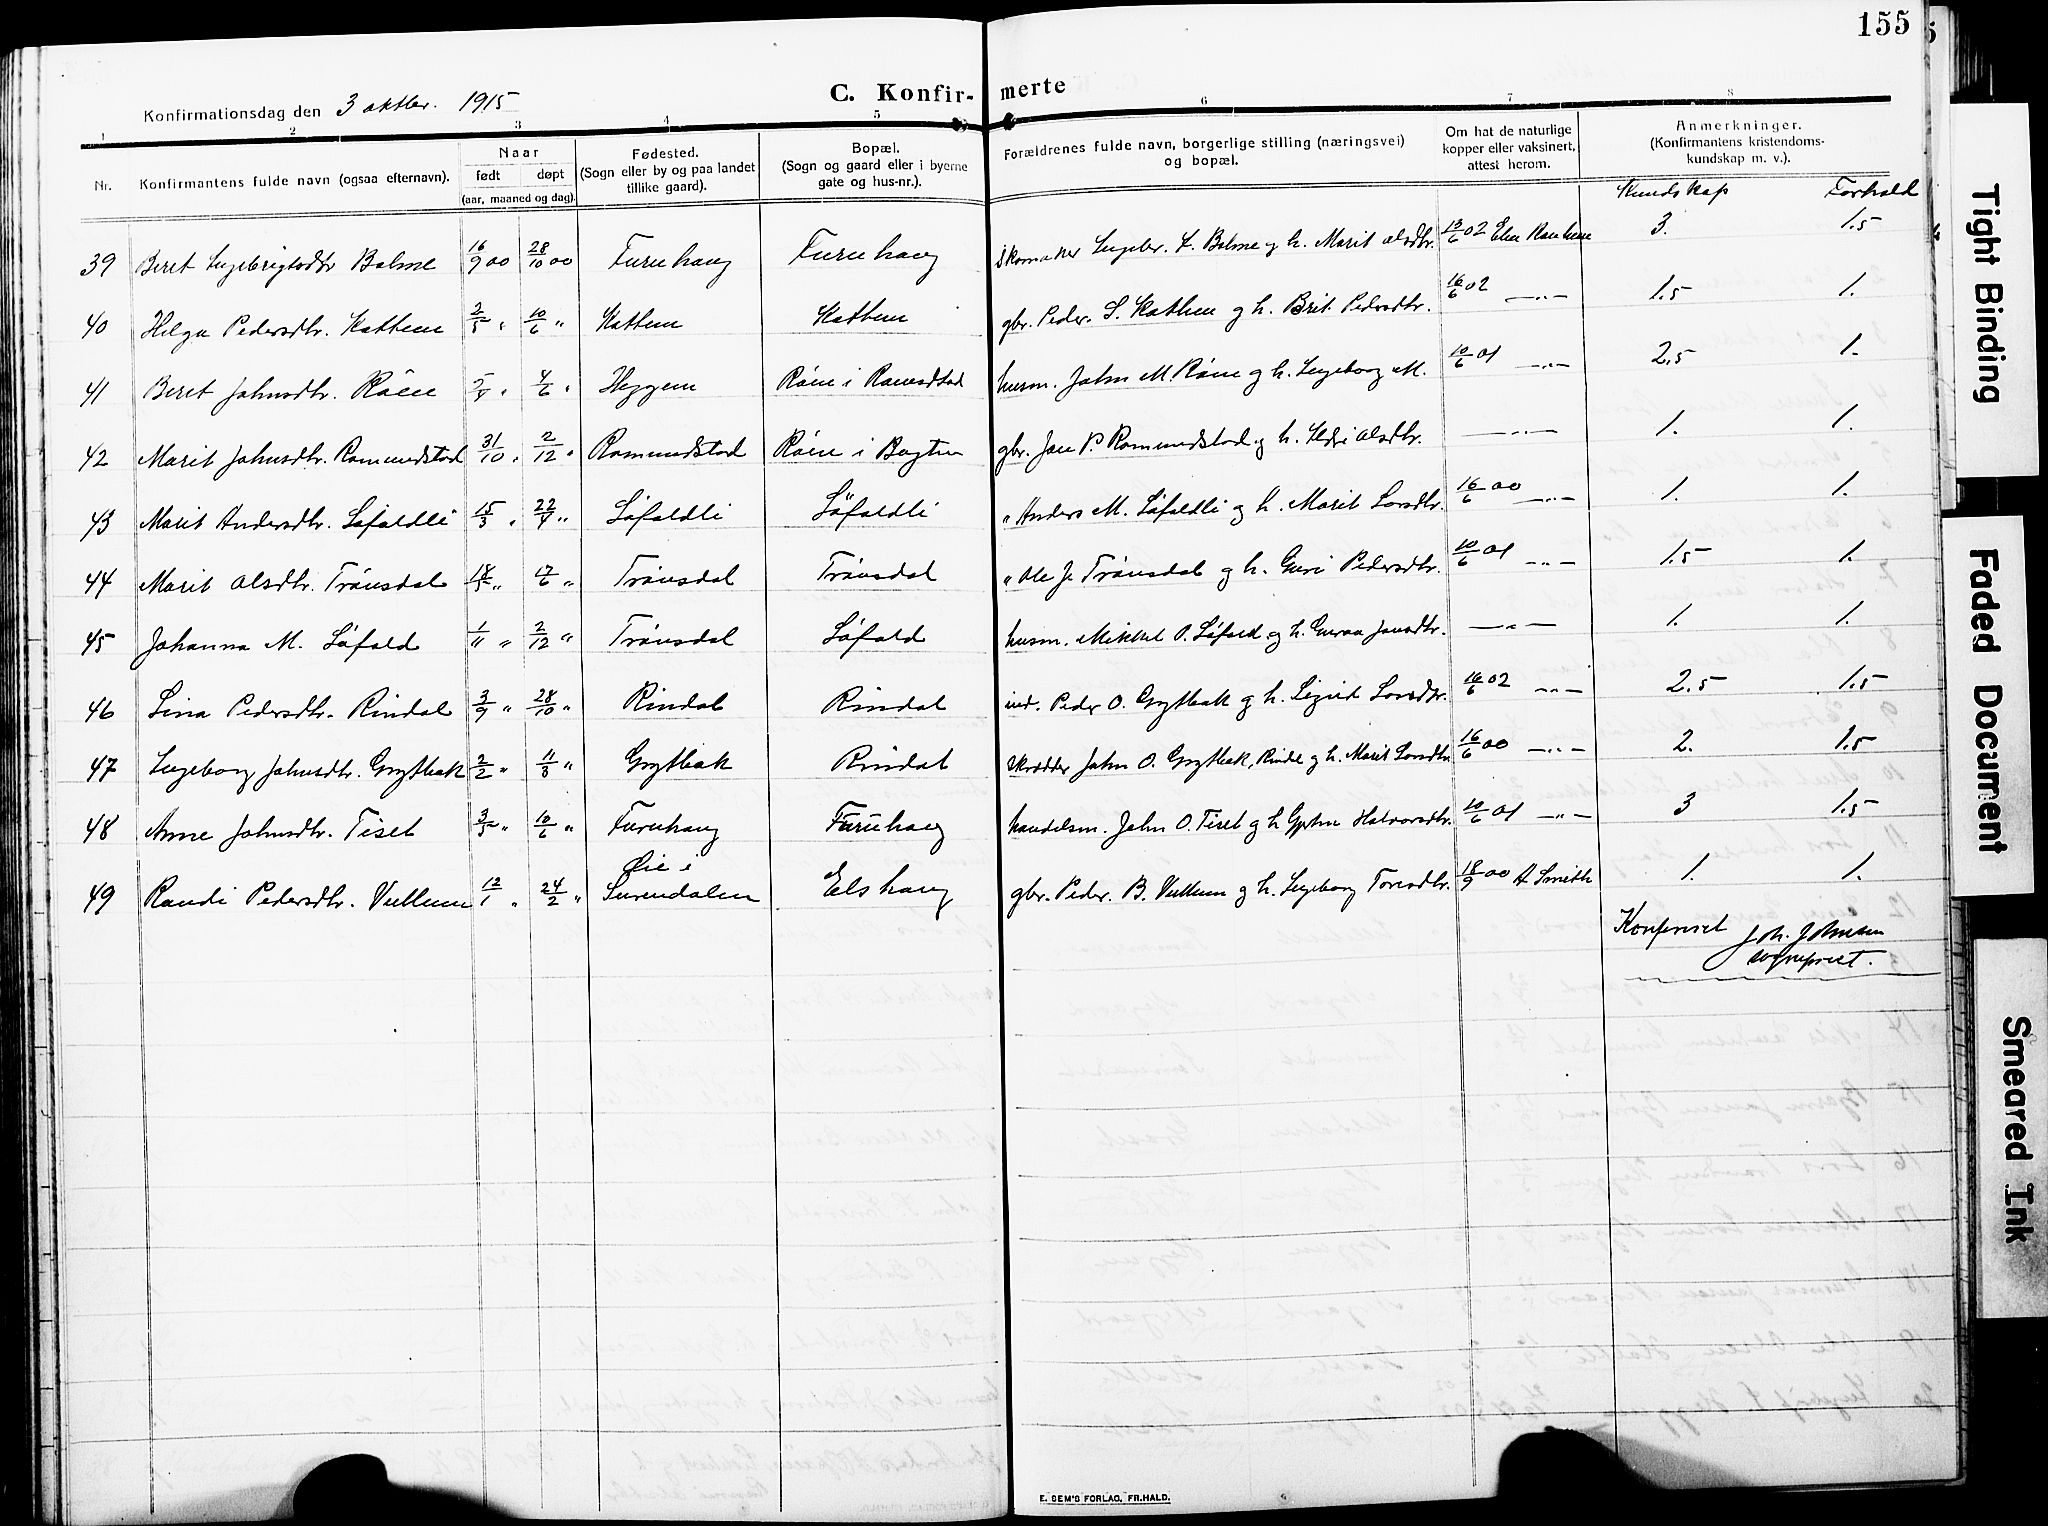 155
Konfirmationsdag den 3 oktbr. 1915
C. Konfir-merte
1 2 3 4 5 6 7 8
Nr.
Konfirmantens fulde navn (ogsaa efternavn).
Naar
født døpt
(aar, maaned og dag).
Fødested.
(Sogn eller by og paa landet
tillike gaard).
Bopæl.
(Sogn og gaard eller i byerne
gate og hus-nr.).
Forældrenes fulde navn, borgerlige stilling (næringsvei)
og bopæl.
Om hat de naturlige
kopper eller vaksinert,
attest herom.
Anmerkninger.
(Konfirmantens kristendoms-
kundskap m. v.).
Kundskap Forhold
39 Beret Ingebrigtsdtr Bolme 16/9 00 28/10 00 Furuhaug Furuhaug Skomaker Ingebr. L. Bolme og h. Marit Olsdtr. 02 3. 1.5
40 Helga Pedersdtr. Kattem 2/5 " 10/6 " Kattem Kattem gbr. Peder. S. Kattem og h. Brit Pedersdtr. 16/6 02 —"— 1.5 1.
41 Beret Johnsdtr. Røen " 4/6 " Heggem Røen i husm. John M. Røen og h. Ingeborg M. 10/6 01 —"— 2.5 1.
42 Marit Johnsdtr. Romundstad 31/10 " 2/12 " Romundstad Røen i gbr. Jon P. Romundstad og h. Olsdtr. —"— 1. 1.
43 Marit Andersdtr. Løfaldli 15/3 " 22/4 " Løfaldli Løfaldli " Anders M. Løfaldli og h. Marit Larsdtr. 16/6 00 —"— 1. 1.
44 Marit Olsdtr. Trønsdal " 17/6 " Trønsdal Trønsdal " Ole J. Trønsdal og h. Guri Pedersdtr. 10/6 01 —"— 1.5 1.
45 Johanna M. Løfald 1/11 " 2/12 " Trønsdal Løfald husm. Mikkel O. Løfald og h. Guraa Jonsdtr. —"— 1. 1.
46 Lina Pedersdtr. Rindal 3/9 " 28/10 " Rindal Rindal ind. Peder O. Grytbak og h. Sigrid Larsdtr. 16/6 02 —"— 2.5 1.5
47 Ingeborg Johnsdtr. Grytbak 2/2 " 11/3 " Grytbak Rindal skrædder John O. Grytbak, Rindal og h. Marit Larsdtr. 16/6 00 —"— 2. 1.5
48 Anne Johnsdtr. Tiset 3/5 " 10/6 " Furuhaug Furuhaug handelsm. John O. Tiset og h. Halvorsdtr. 10/6 01 —"— 3 1.5
49 Randi Pedersdtr. Vullum 12/1 " 24/2 " Øie i
Surendalen Elshaug gbr. Peder. B. Vullum og h. Ingeborg Toresdtr. 18/9 00 A Smith 1. 1.
Konfereret Joh. Johnsen
sogneprest.
E. SEM'S FORLAG, FR.HALD.
Tight Binding
Faded Document
Smeared Ink